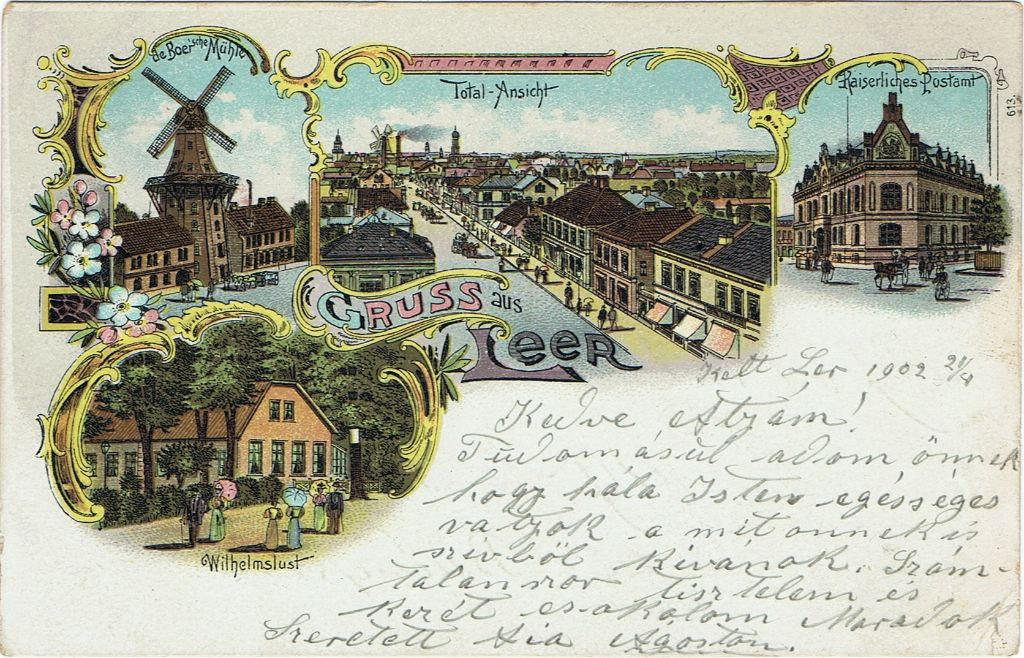 de Boer'sche Mühle
Total-Ansicht
Kaiserliches Postamt
613.
GRUSS aus
Leer
Wilhelmslust
Kelt Ler 1902 21/4
Kedve Atyám!
Tudomásul adom önnek
hogy hála Isten egésséges
vagyok a mit önnek is
szivből kivánok. Szám-
talanszor tisztelem és
kezét csokolom Maradok
Szeretett fia Agoston.